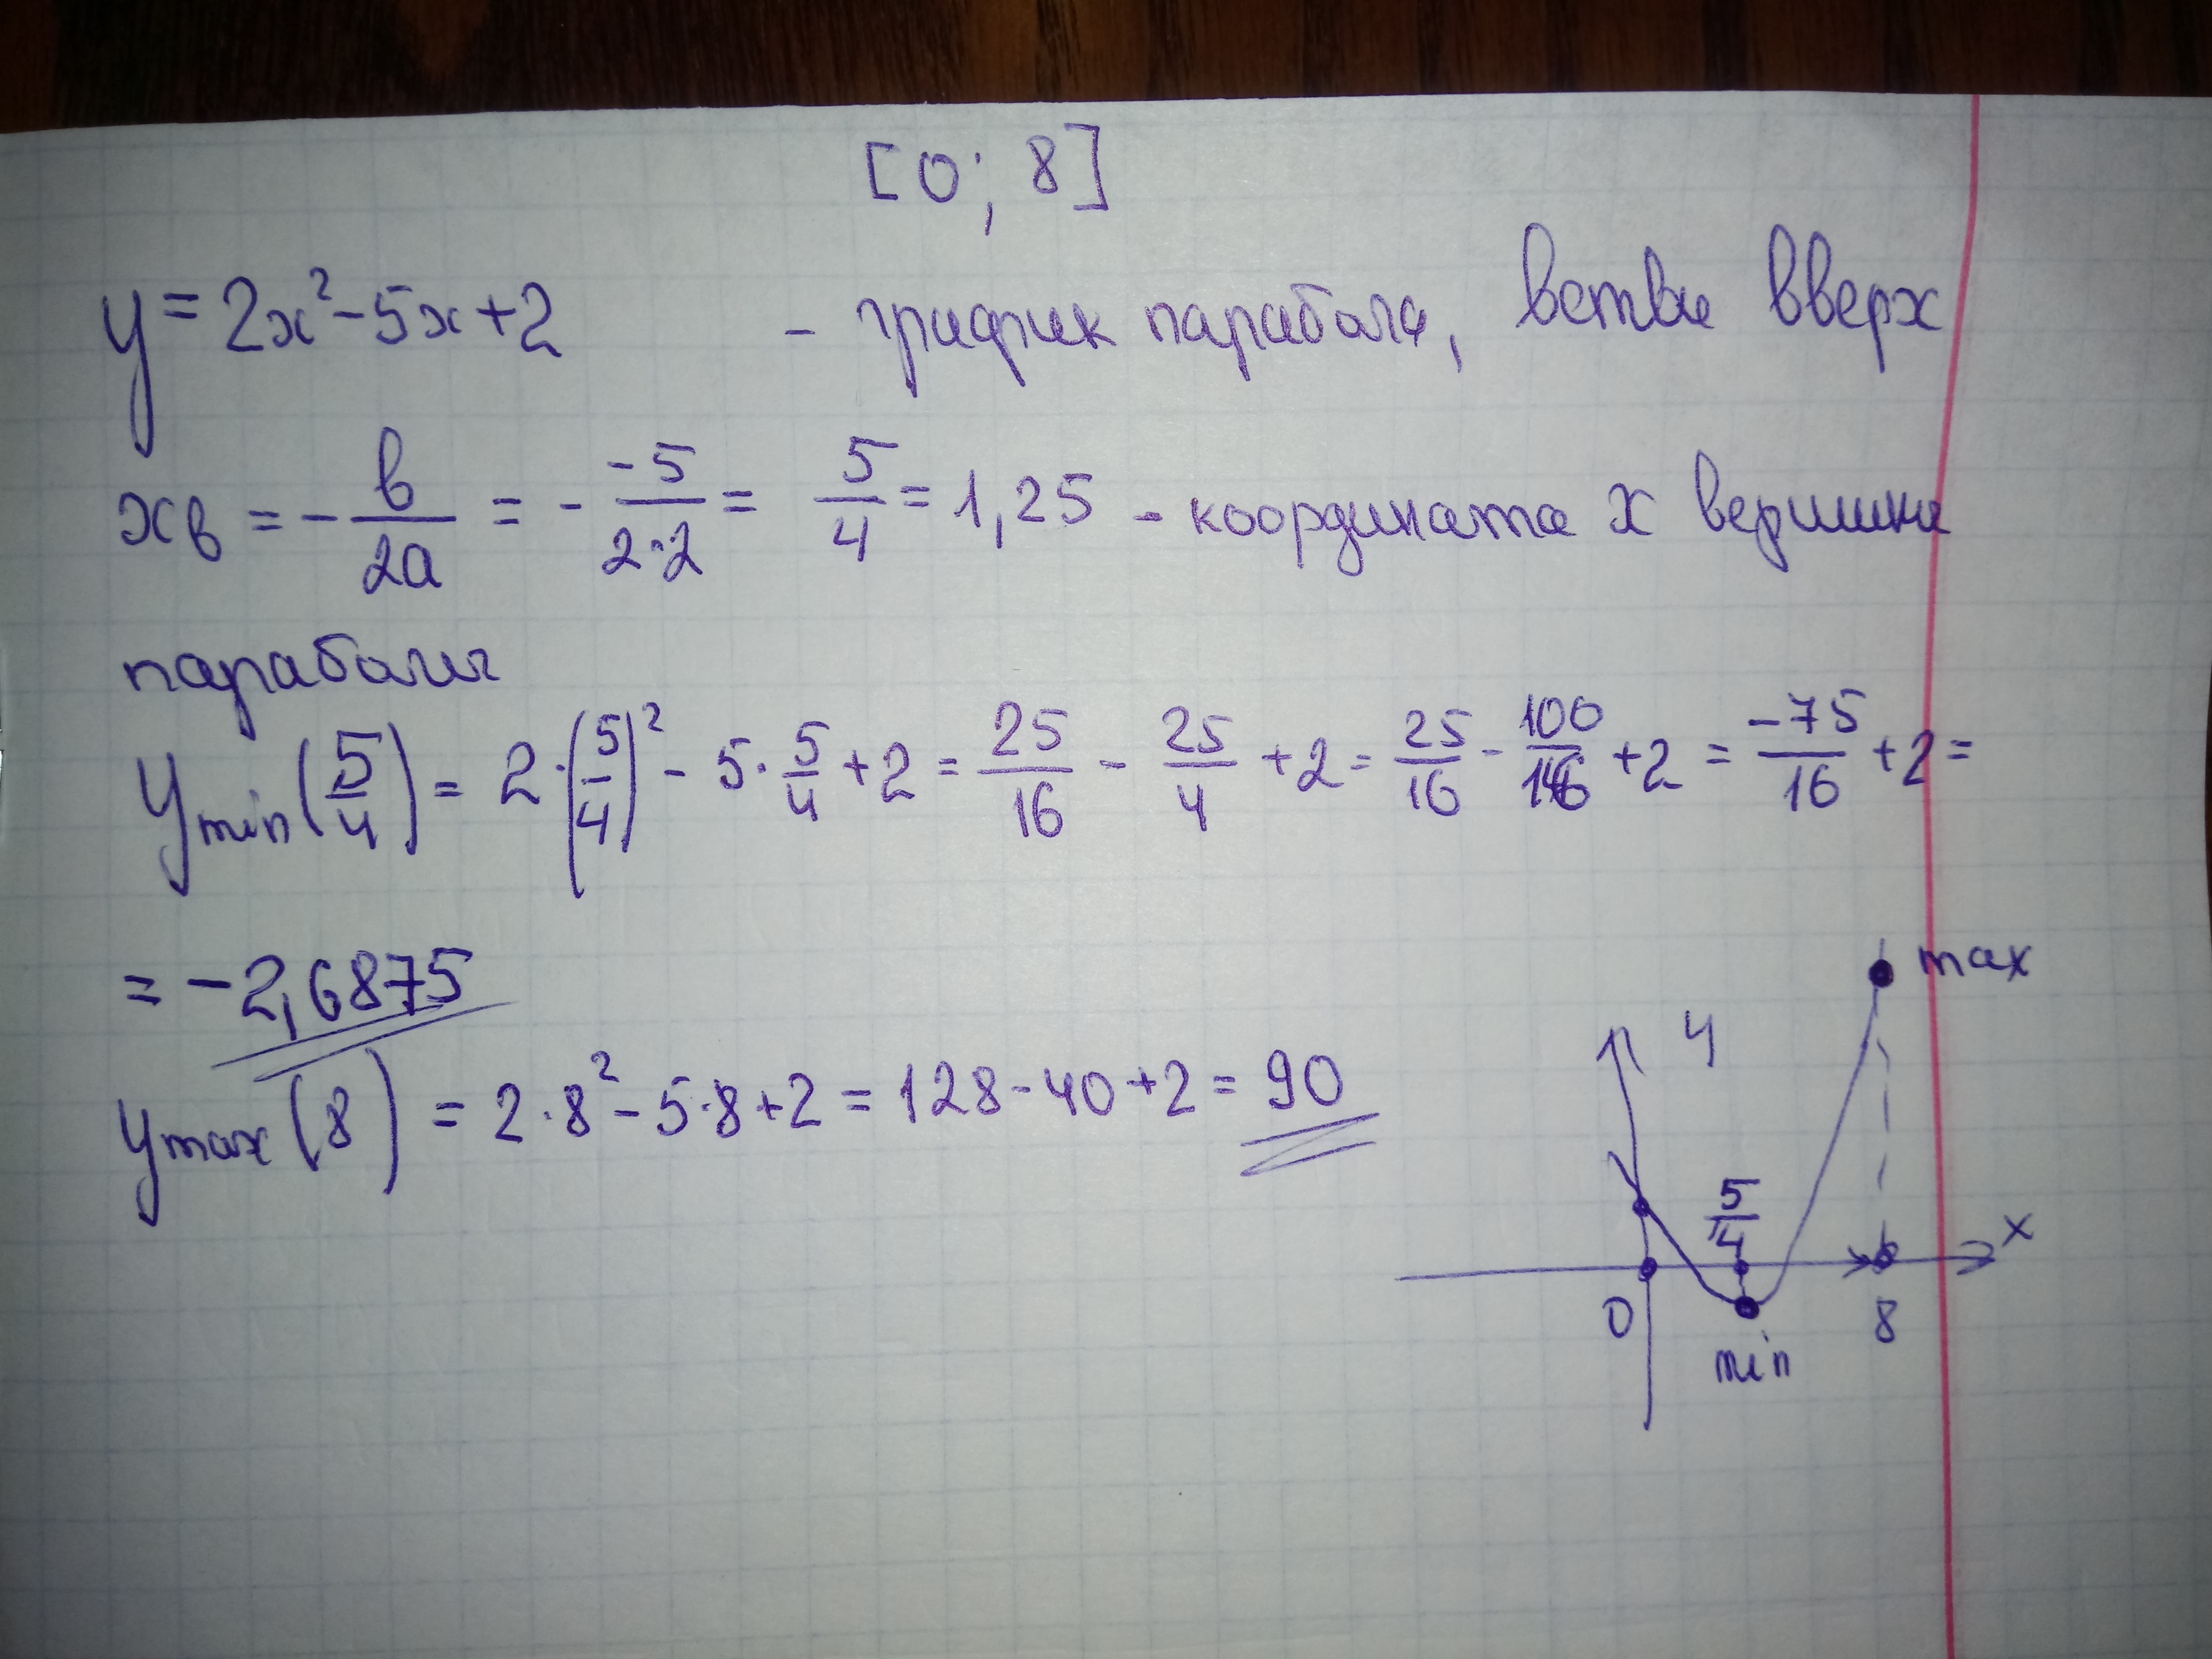 [0; 8]
y = 2x² - 5x + 2 - график парабола, ветви вверх
xв = - в/2a = - -5/2·2 = 5/4 = 1,25 - координата x вершины
параболы
ymin(5/4) = 2·(5/4)² - 5·5/4 + 2 = 25/16 - 25/4 + 2 = 25/16 - 100/16 + 2 = -75/16 + 2 =
= -2,6875
ymax(8) = 2·8² - 5·8 + 2 = 128 - 40 + 2 = 90
max
y
5/4
x
0
8
min